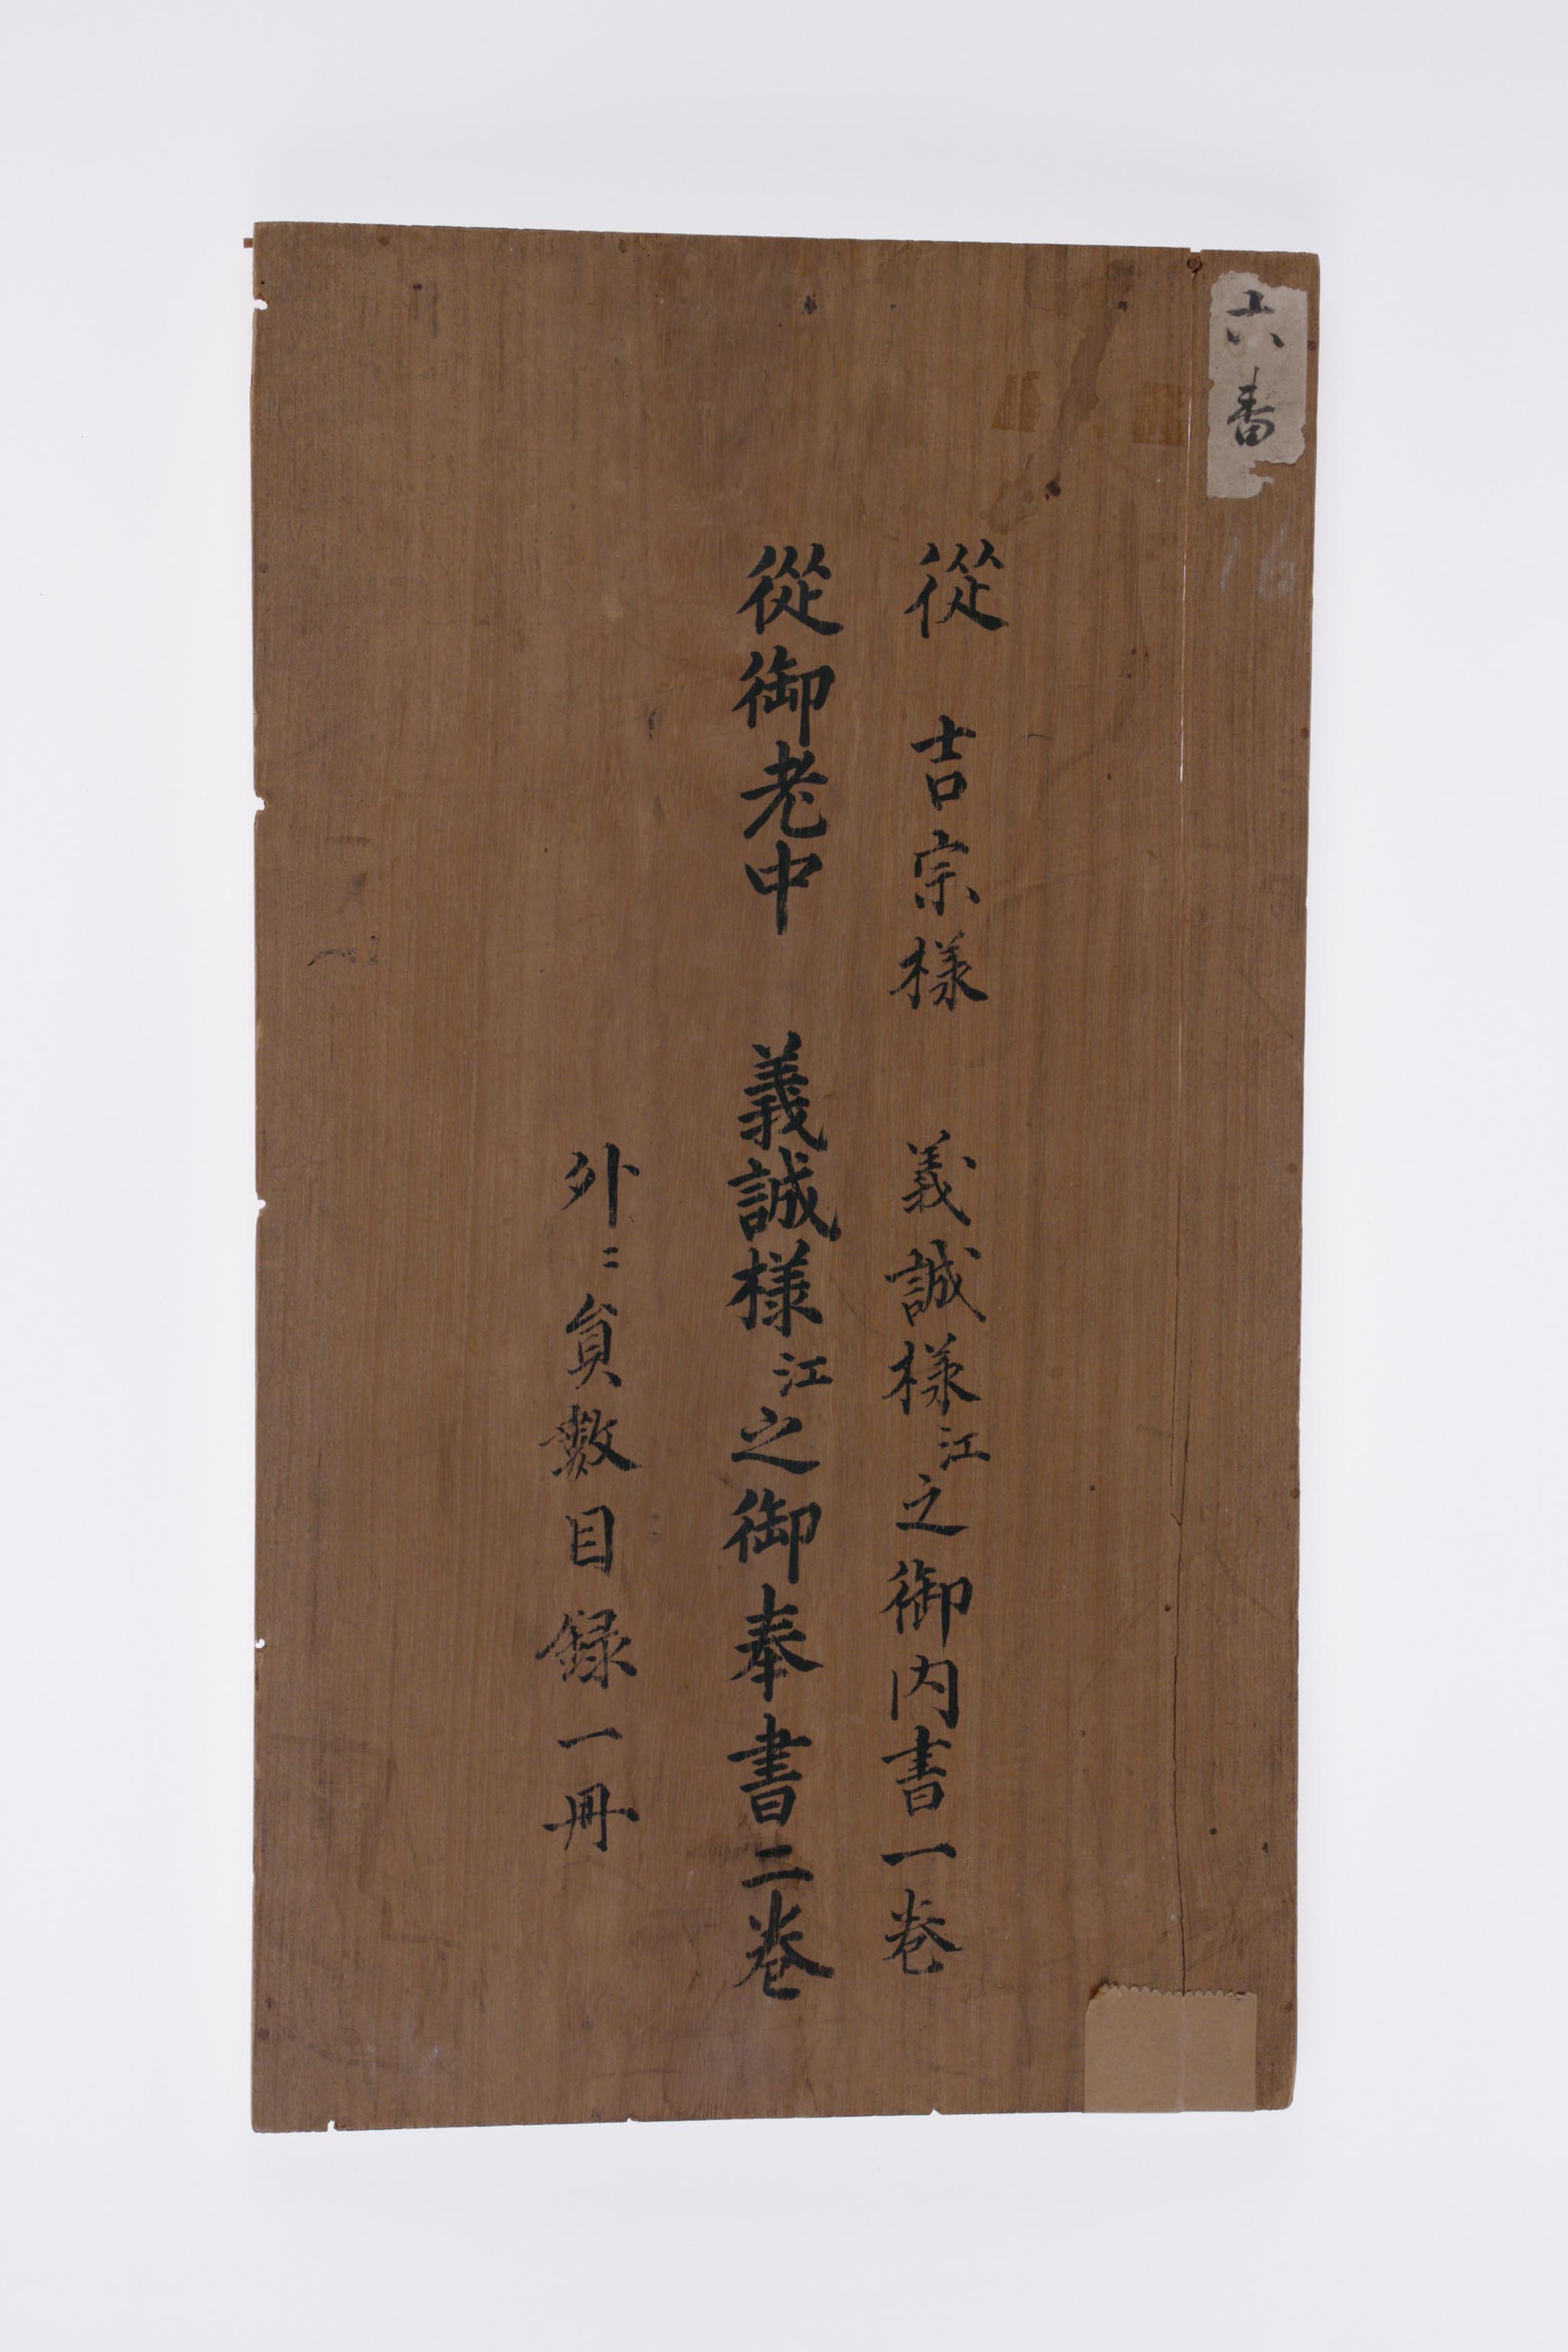 六番
16
從　吉宗様　義誠様江之御内書一巻
從御老中　義誠様江之御奉書二巻
外ニ員数目録一冊